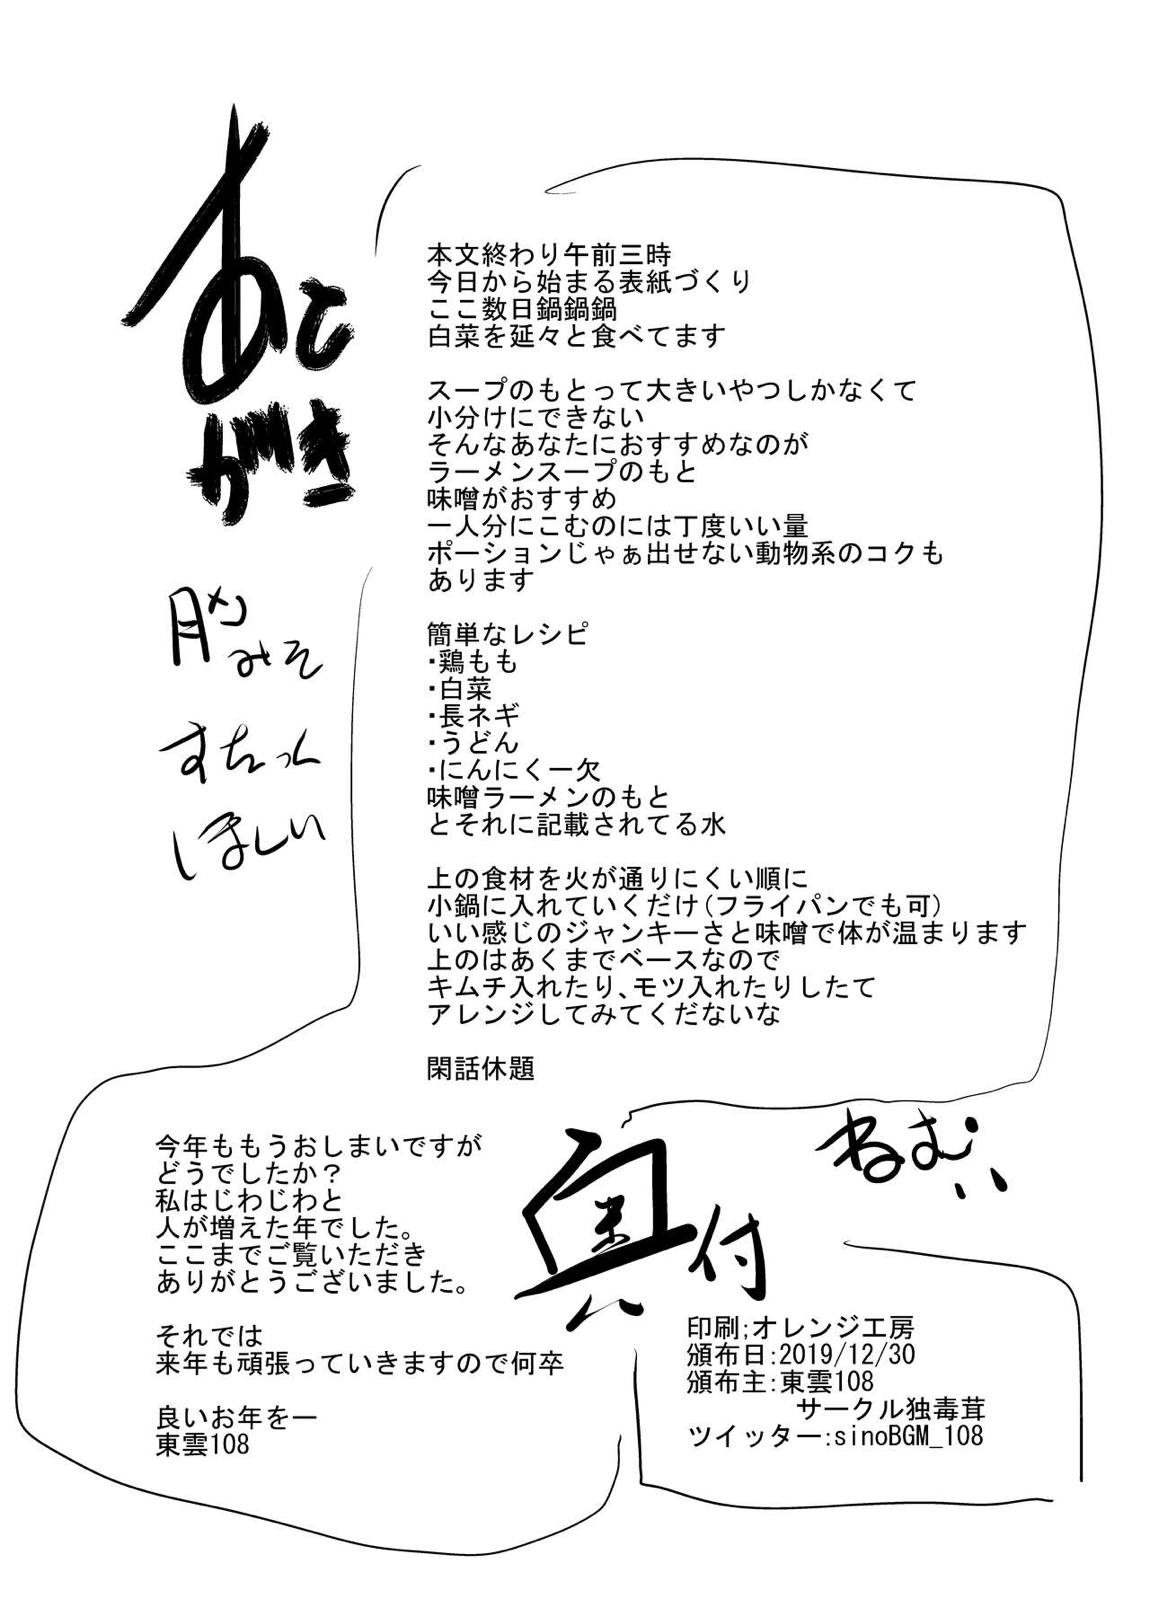 あとがき
本文終わり午前三時
今日から始まる表紙づくり
ここ数日鍋鍋鍋
白菜を延々と食べてます
スープのもとって大きいやつしかなくて
小分けにできない
そんなあなたにおすすめなのが
ラーメンスープのもと
味噌がおすすめ
一人分にこむのには丁度いい量
ポーションじゃぁ出せない動物系のコクも
あります
簡単なレシピ
・鶏もも
・白菜
・長ネギ
・うどん
・にんにく一欠
味噌ラーメンのもと
とそれに記載されてる水
上の食材を火が通りにくい順に
小鍋に入れていくだけ(フライパンでも可)
いい感じのジャンキーさと味噌で体が温まります
上のはあくまでベースなので
キムチ入れたり、モツ入れたりしたて
アレンジしてみてくだないな
閑話休題
みそ
すたっく
ほしい
今年ももうおしまいですが
どうでしたか？
私はじわじわと
人が増えた年でした。
ここまでご覧いただき
ありがとうございました。
それでは
来年も頑張っていきますので何卒
良いお年をー
東雲108
ねむい
奥付
印刷;オレンジ工房
頒布日:2019/12/30
頒布主:東雲108
サークル独毒茸
ツイッター:sinoBGM_108